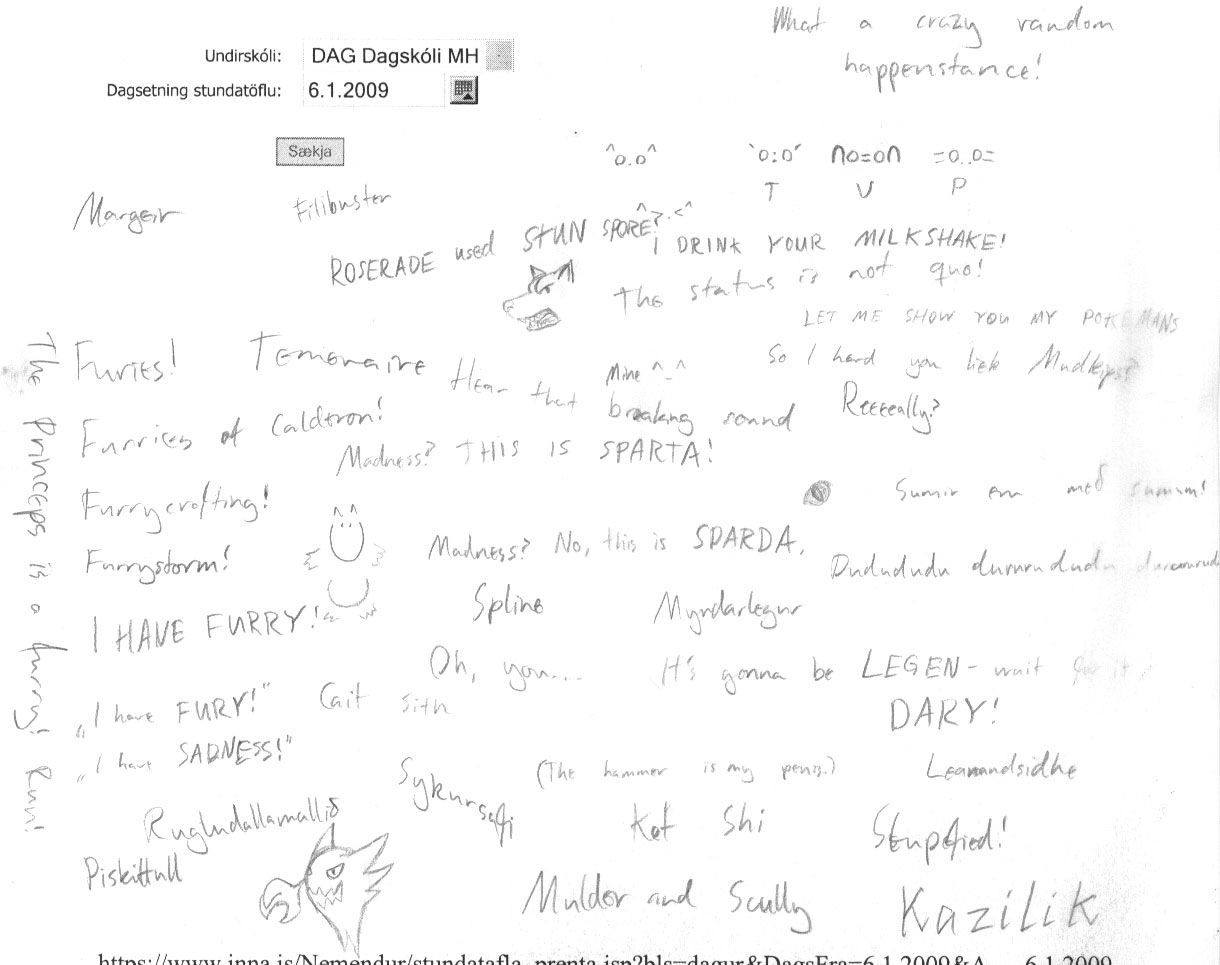 What a crazy random
happenstance!
Undirskóli: DAG Dagskóli MH
Dagsetning stundatöflu: 6.1.2009
Sækja
^o.o^ `o:o´ no=on =o..o=
T U P
Margeir Filibuster
ROSERADE used STUN SPORE? ^.<^
I DRINK YOUR MILKSHAKE!
The status is not quo!
LET ME SHOW YOU MY POKEMANS
So I herd you liek Mudkips?
Reeeeally?
The Princeps is a furry! Run!
Furies! Temeraire
Mine ^_^
Hear that breaking sound
Furries of Calderon!
Madness? THIS IS SPARTA!
Furrycrofting!
Sumir eru með sumum!
Furrystorm!
Madness? No, this is SPARDA.
Dudududu dururududu
I HAVE FURRY!
Spline Myndarlegur
Oh, you...
It's gonna be LEGEN- wait for it
DARY!
„I have FURY!" Cait Sith
„I have SADNESS!"
(The hammer is my penis.) Leanandsidhe
Sykursæti
Rugludallamallið
Ket Shi Stupefied!
Piskittull
Mulder and Scully Kazilik
https://www.inna.is/Nemendur/stundatafla_prenta.jsp?bls=dagur&DagsFra=6.1.2009&A... 6.1.2009